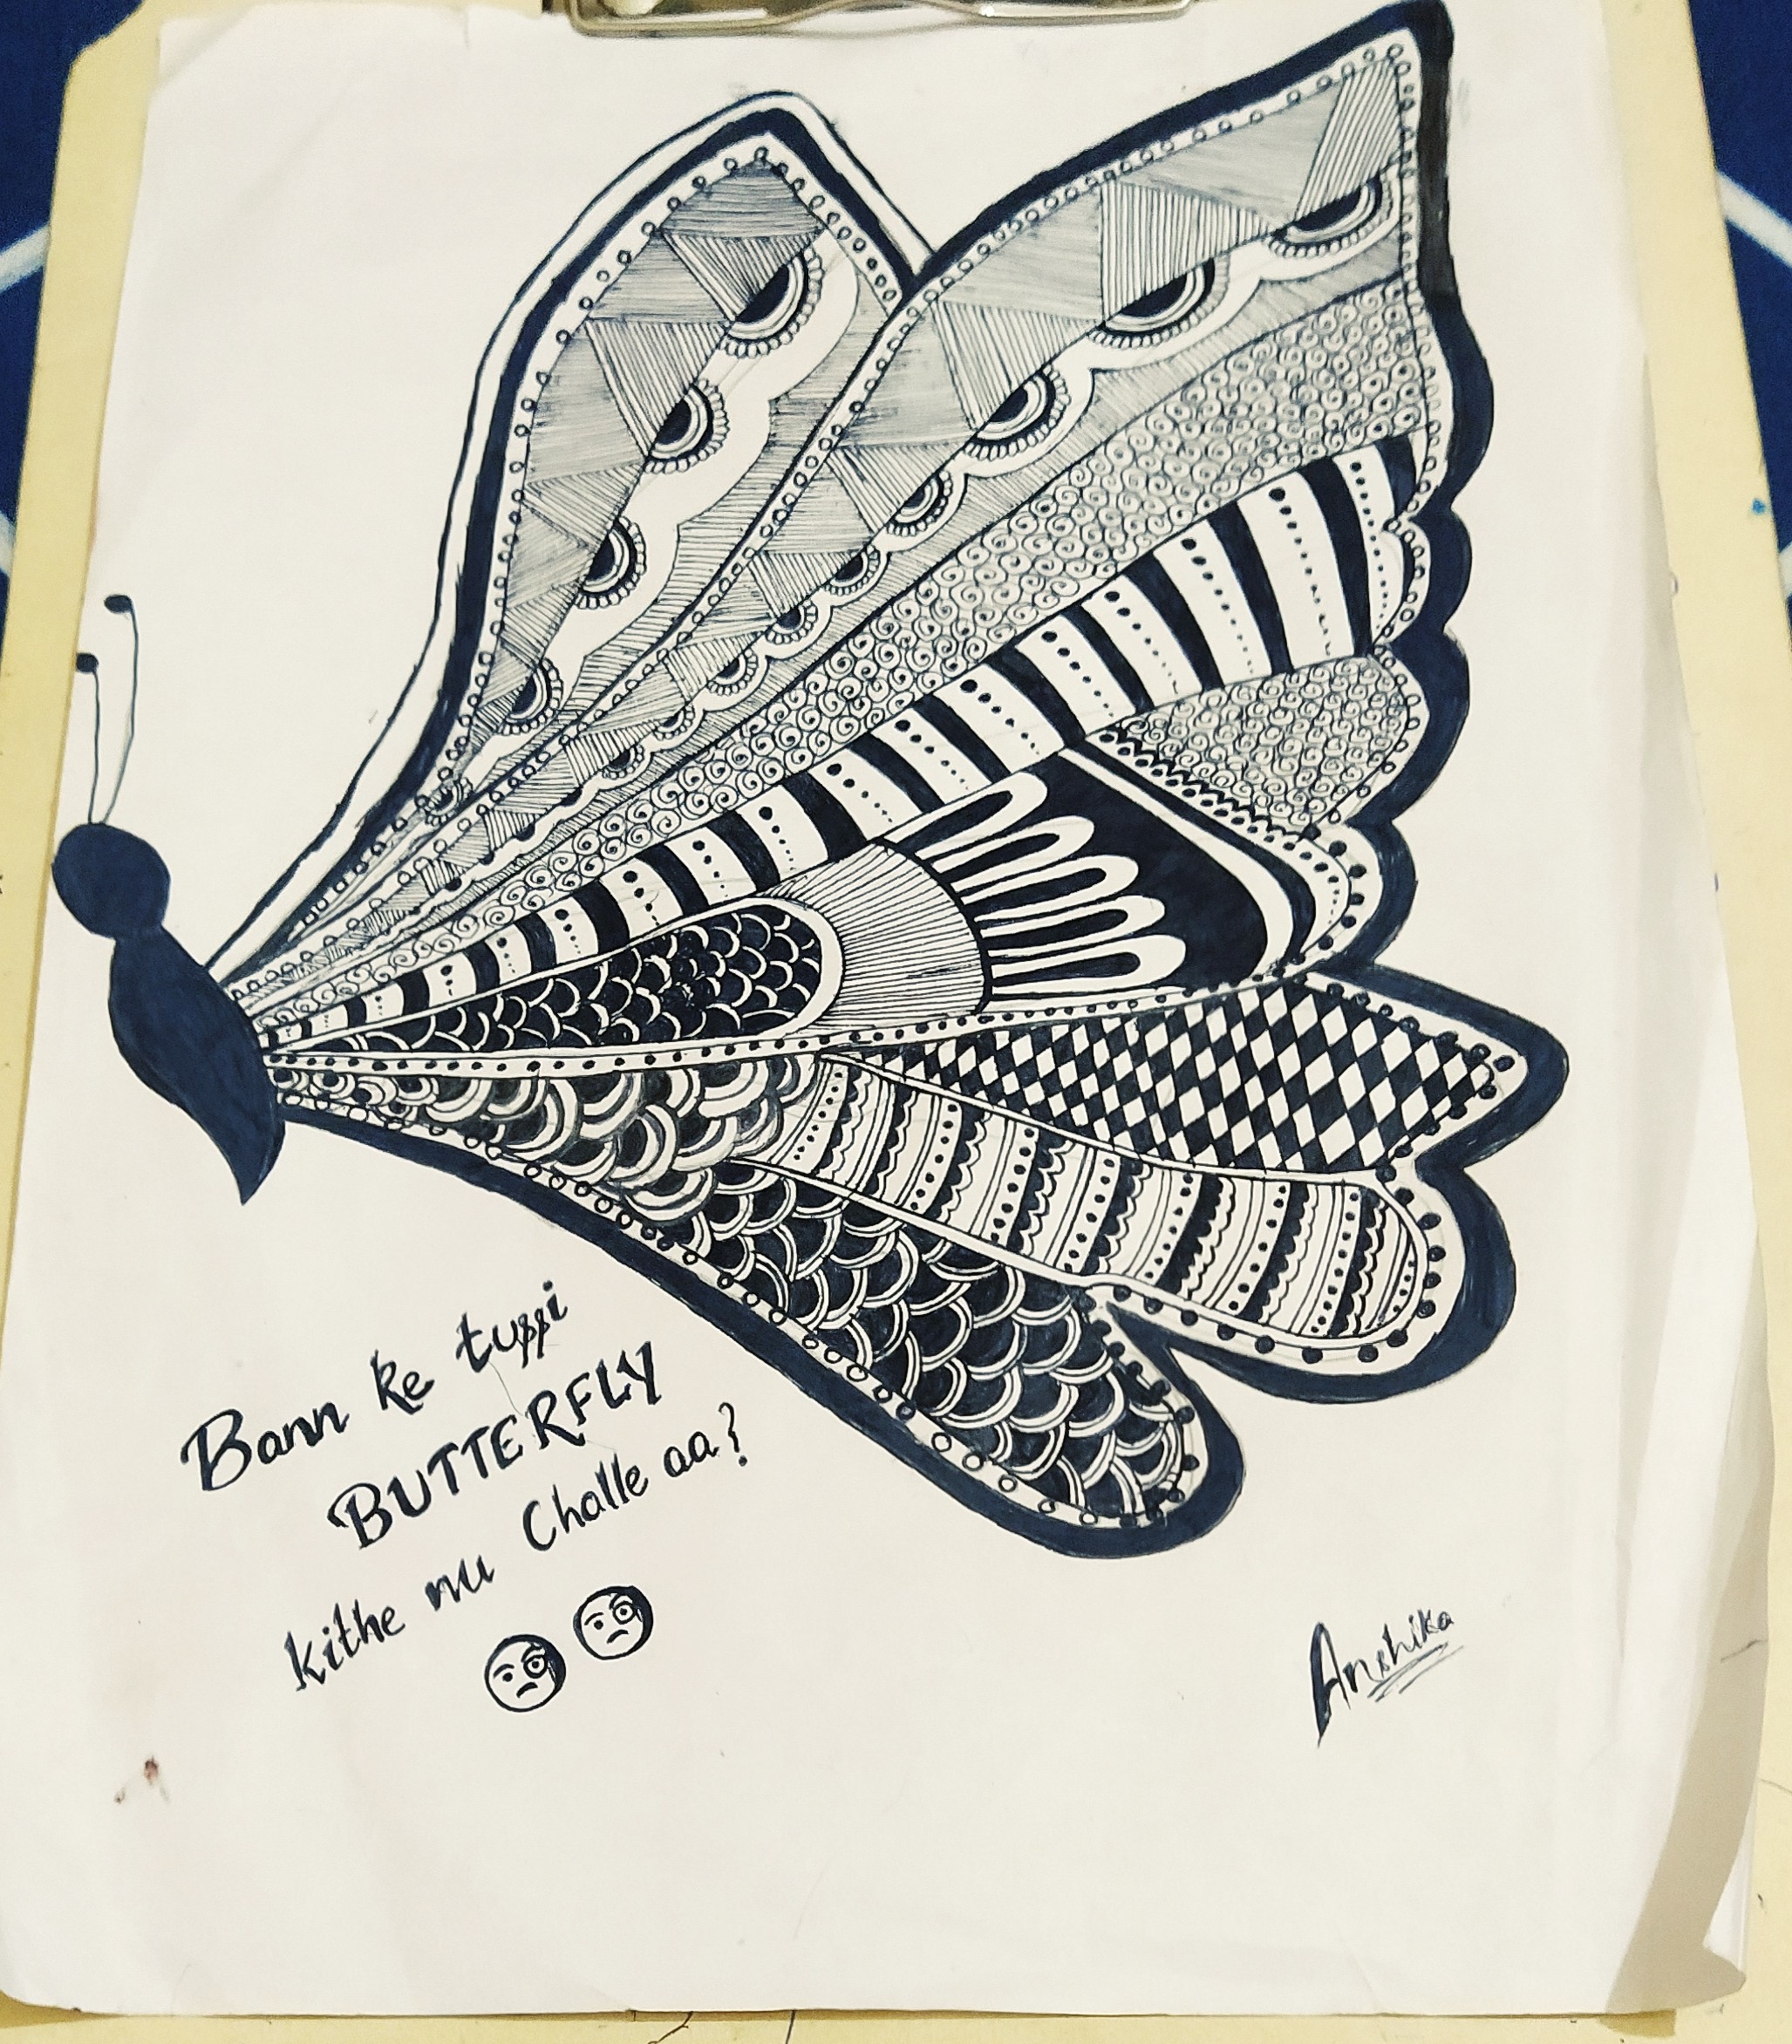 Bann ke tuppi
BUTTERFLY
kithe nu Challe aa?
Anshika